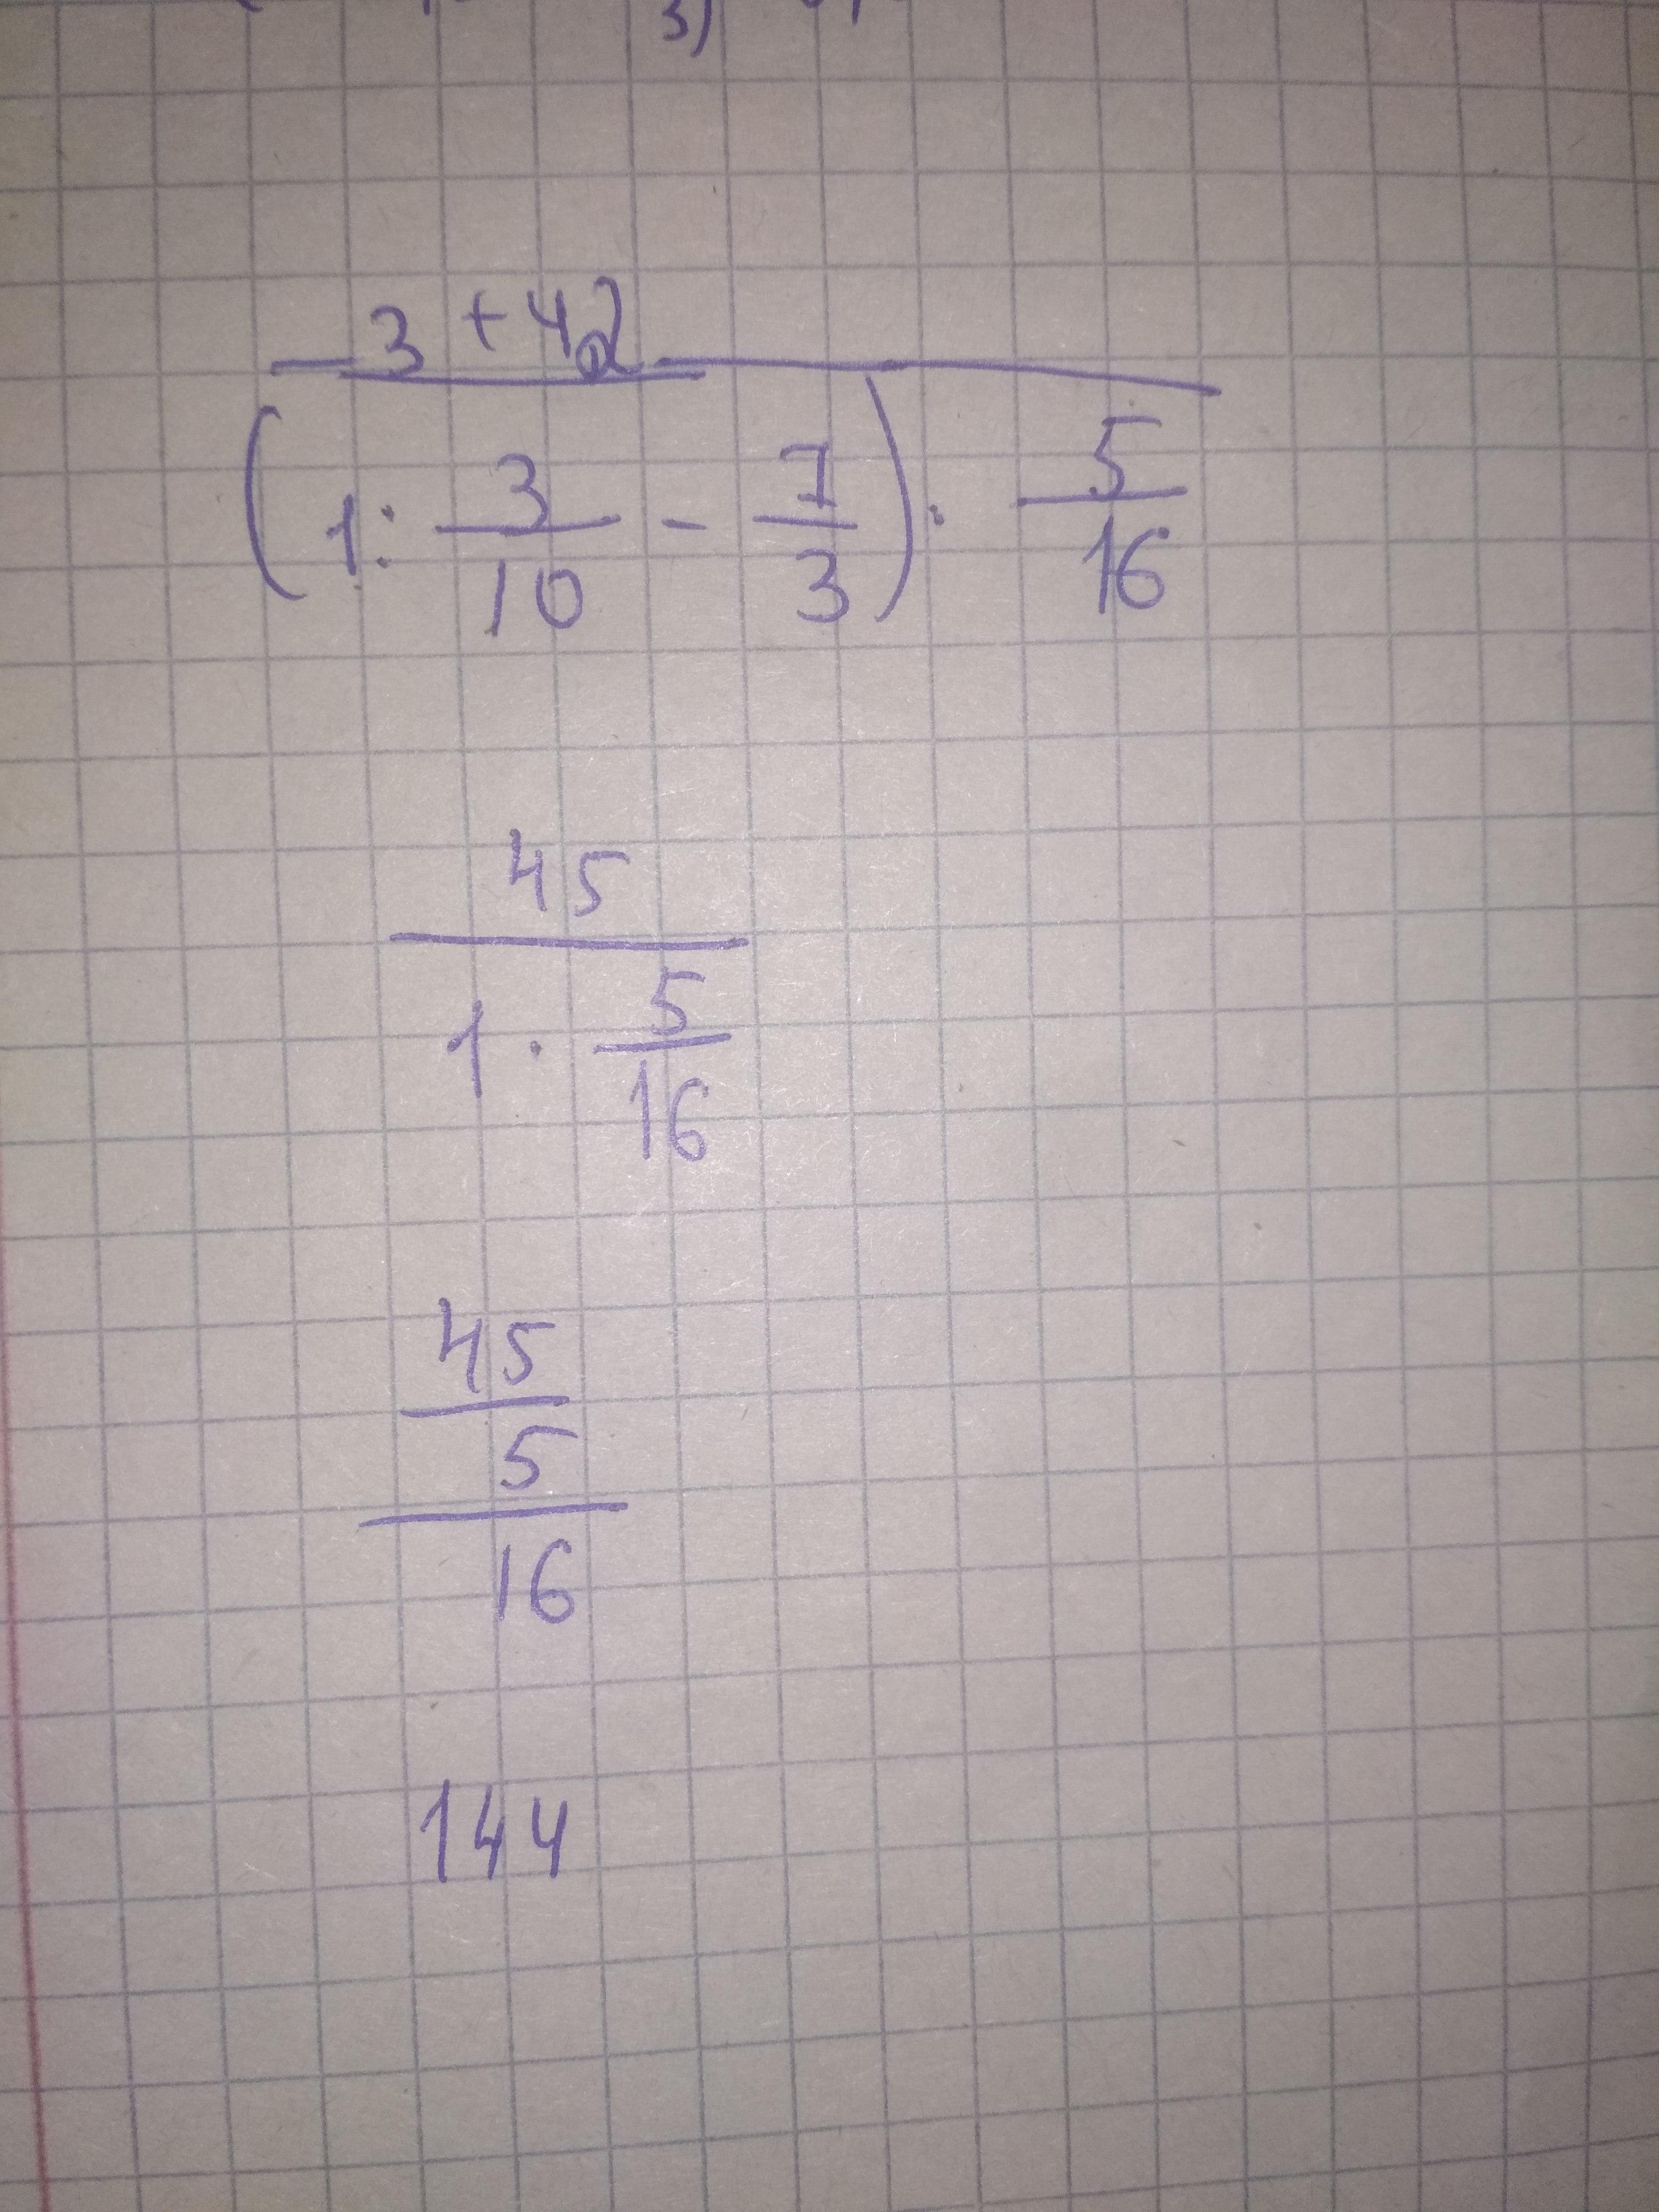 3)
3 + 42
(1 : 3/10 - 7/3) · 5/16
45
1 · 5/16
45
5
16
144